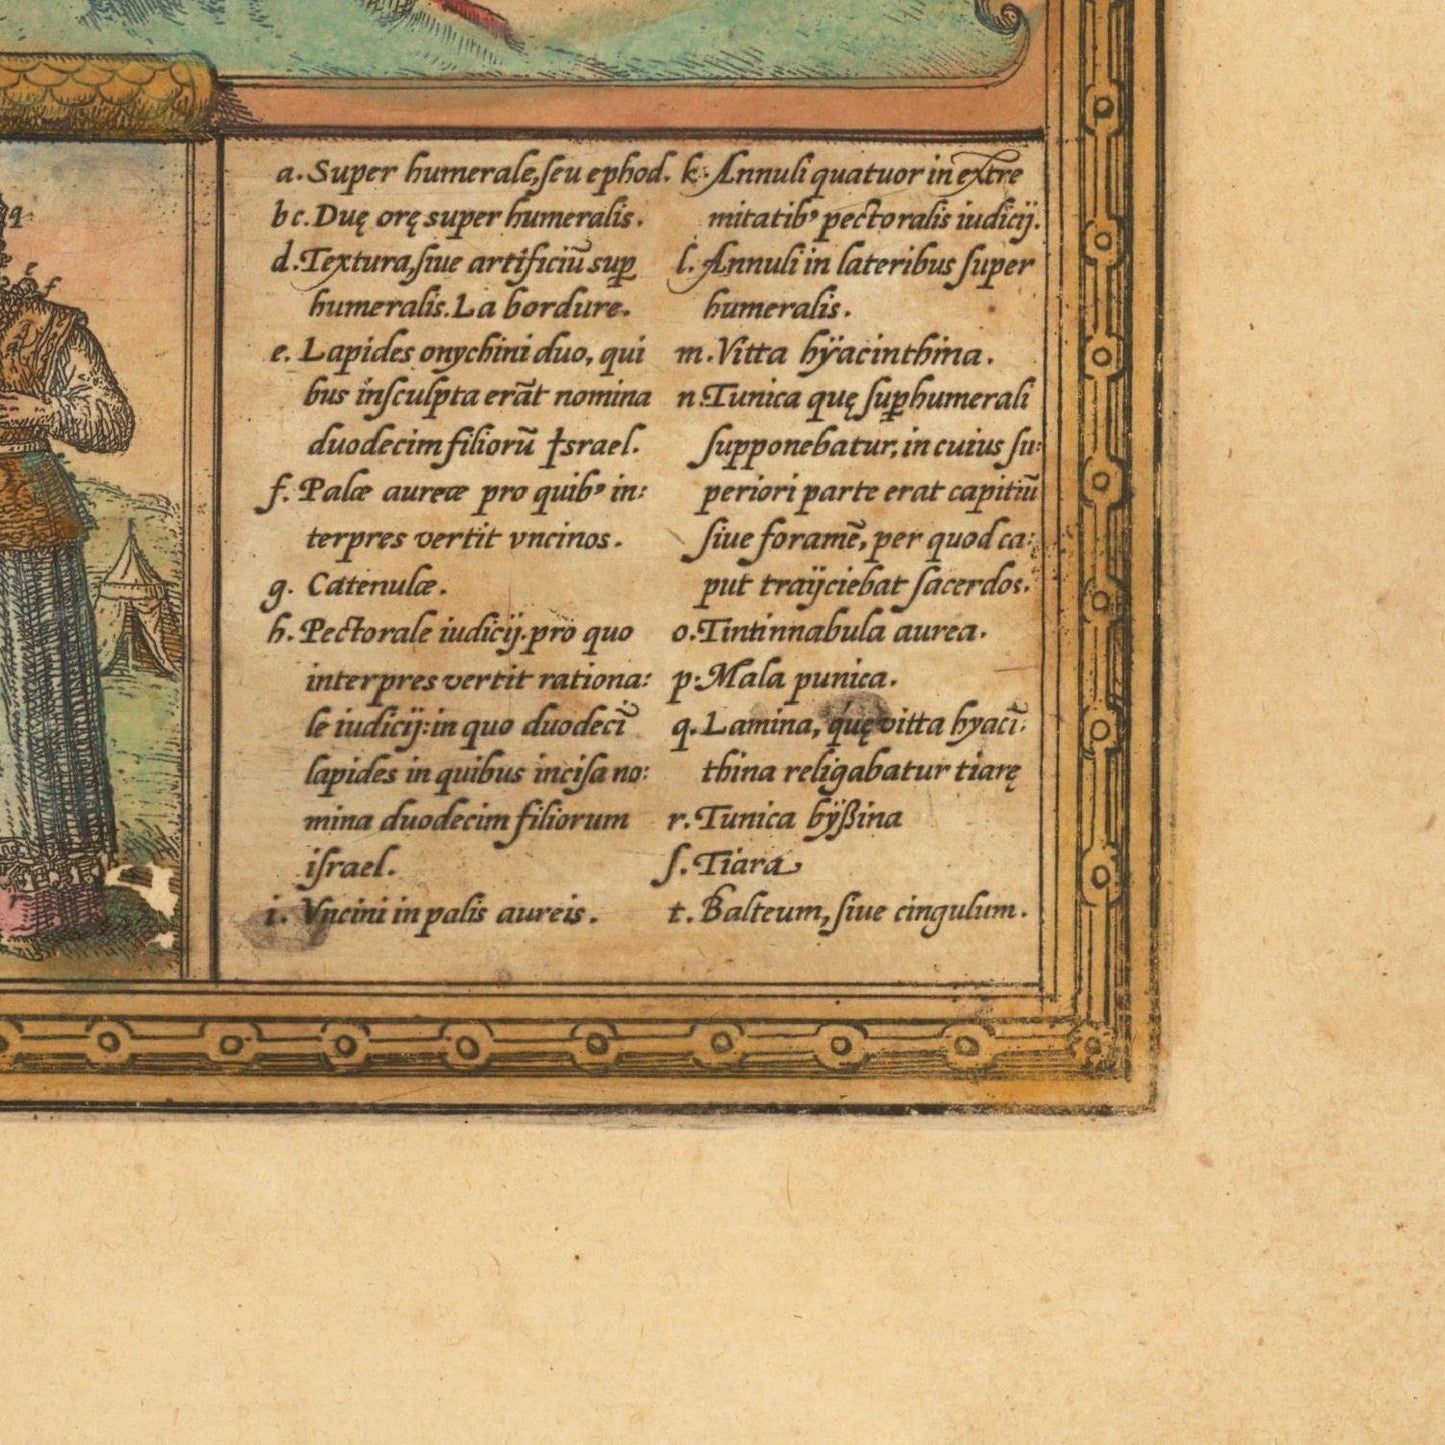 a. Super humerale, seu ephod.
b c. Duę orę super humeralis.
d. Textura, siue artificiū sup̱
humeralis. La bordure.
e. Lapides onychini duo, qui
bus insculpta erāt nomina
duodecim filiorū Israel.
f. Palæ aureæ pro quibꝰ in:
terpres vertit vncinos.
g. Catenulæ.
h. Pectorale iudicij. pro quo
interpres vertit rationa:
le iudicij: in quo duodecī
lapides in quibus incisa no:
mina duodecim filiorum
israel.
i. Vncini in palis aureis.
k. Annuli quatuor in extre
mitatibꝰ pectoralis iudicij.
l. Annuli in lateribus super
humeralis.
m. Vitta hÿacinthina.
n. Tunica quę sup̱humerali
supponebatur, in cuius su:
periori parte erat capitiū
siue foramē, per quod ca:
put traÿciebat sacerdos.
o. Tintinnabula aurea.
p. Mala punica.
q. Lamina, quę vitta hyacī:
thina religabatur tiarę
r. Tunica bÿßina
s. Tiara
t. Balteum, siue cingulum.
q
e
f
r